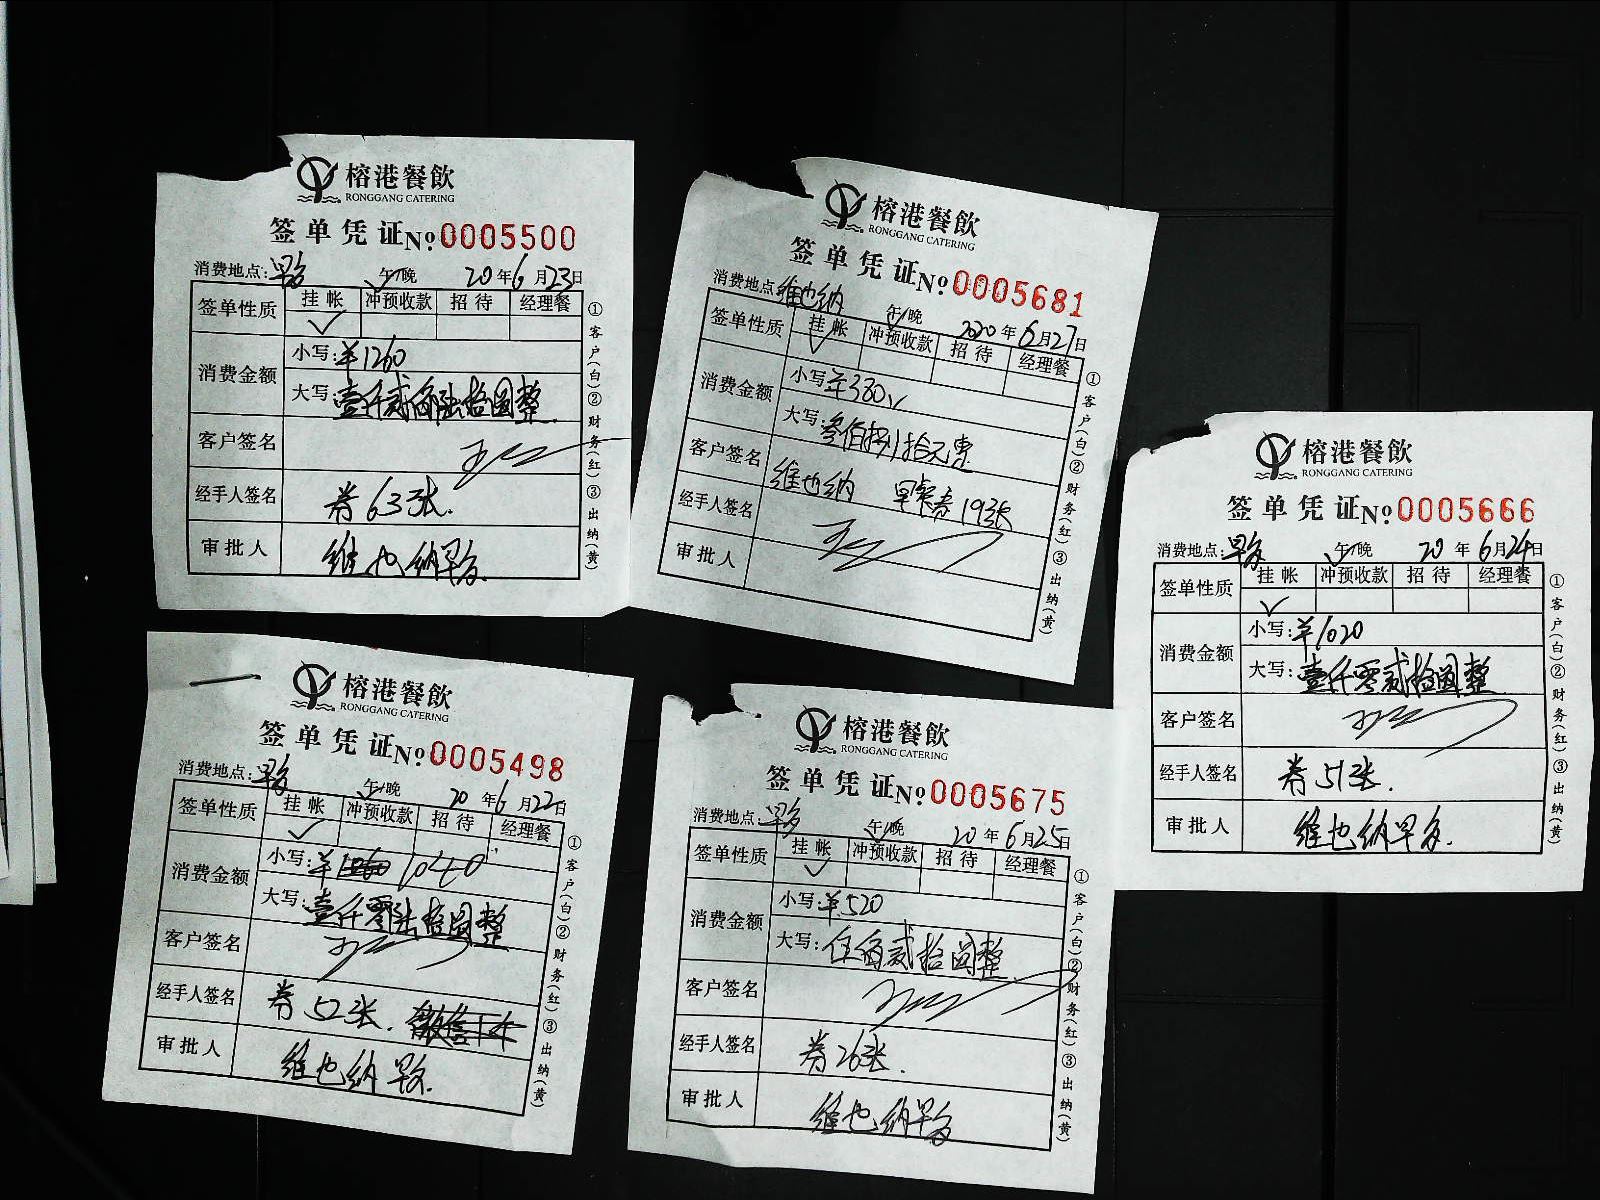 榕港餐飲
RONGGANG CATERING
签单凭证 No 0005500
消费地点:早多 午/晚 20年6月23日
签单性质 挂帐 冲预收款 招待 经理餐
✓
消费金额 小写:¥1260
大写:壹仟贰佰陆拾圆整
客户签名
经手人签名 券63张.
审批人 维也纳早多.
①客户(白)②财务(红)③出纳(黄)
榕港餐飲
RONGGANG CATERING
签单凭证 No 0005681
消费地点:维也纳 午/晚 2020年6月27日
签单性质 挂帐 冲预收款 招待 经理餐
✓
消费金额 小写:¥380
大写:叁佰捌拾元
客户签名 维也纳 早餐券19张
经手人签名
审批人
①客户(白)②财务(红)③出纳(黄)
榕港餐飲
RONGGANG CATERING
签单凭证 No 0005666
消费地点:早多 午/晚 20年6月24日
签单性质 挂帐 冲预收款 招待 经理餐
✓
消费金额 小写:¥1020
大写:壹仟零贰拾圆整
客户签名
经手人签名 券51张.
审批人 维也纳早多.
①客户(白)②财务(红)③出纳(黄)
榕港餐飲
RONGGANG CATERING
签单凭证 No 0005498
消费地点:早多 午/晚 20年6月22日
签单性质 挂帐 冲预收款 招待 经理餐
✓
消费金额 小写:¥1040
大写:壹仟零陆拾圆整
客户签名
经手人签名 券52张.
审批人 维也纳早多.
①客户(白)②财务(红)③出纳(黄)
榕港餐飲
RONGGANG CATERING
签单凭证 No 0005675
消费地点:早多 午/晚 20年6月25日
签单性质 挂帐 冲预收款 招待 经理餐
✓
消费金额 小写:¥520
大写:伍佰贰拾圆整
客户签名
经手人签名 券26张.
审批人 维也纳早多
①客户(白)②财务(红)③出纳(黄)